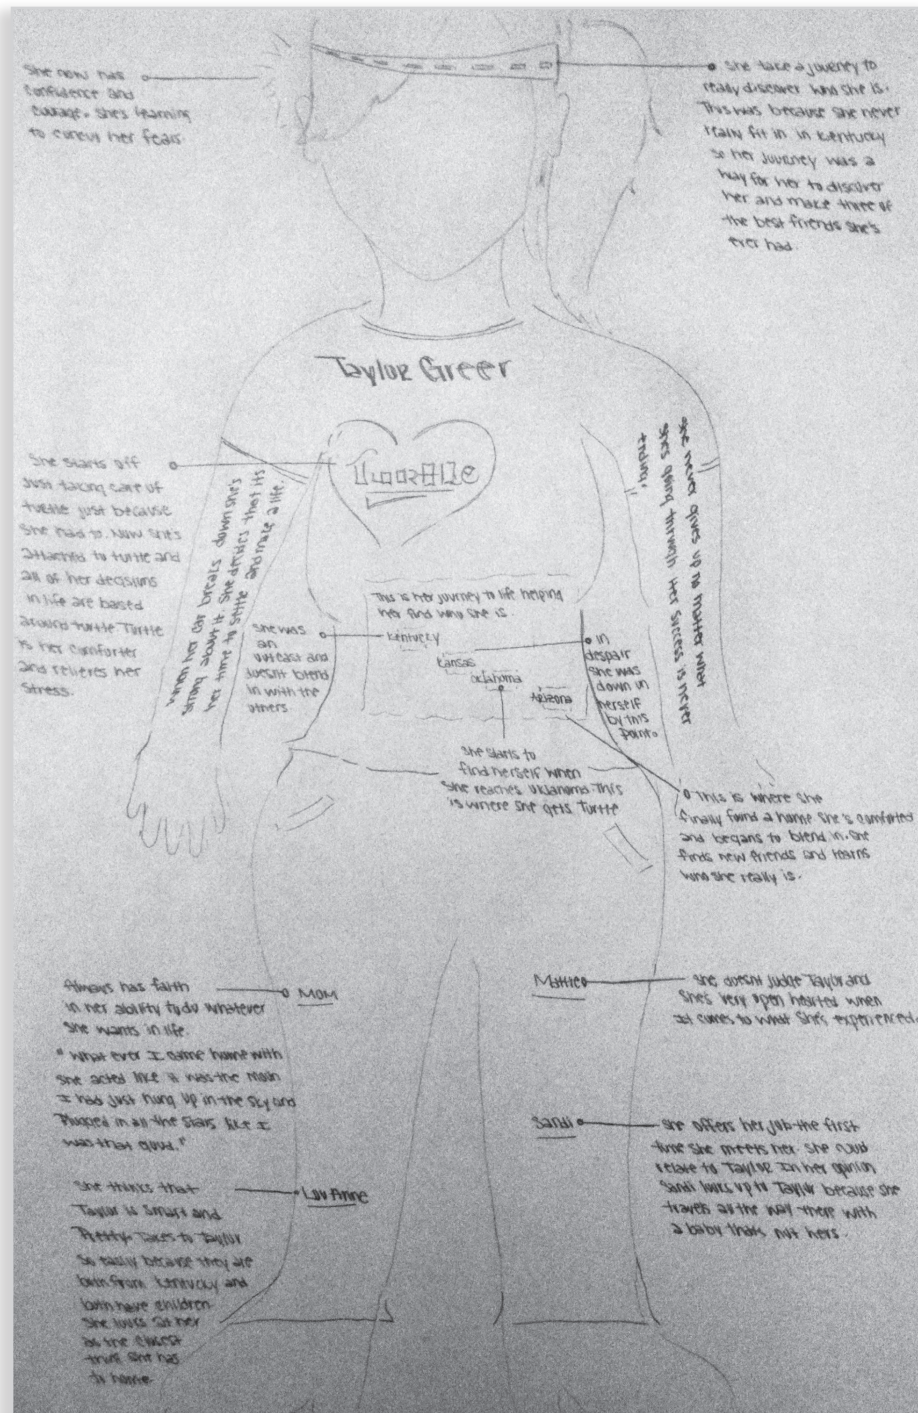 She now has
confidence and
courage. She's learning
to her fears.
She take a journey to
really discover who she is.
This was because she never
really fit in in Kentucky
so her journey was a
way for her to discover
her and make three of
the best friends she's
ever had.
Taylor Greer
She starts off
Just taking care of
turtle just because
she had to. Now she's
attached to turtle and
all of her decisions
in life are based
around turtle. Turtle
is her comforter
and relieves her
stress.
When her car breaks down she's
strong about it. She decides that its
her time to settle and make a life.
She never gives up no matter what
she's going through. Her success is never
This is her journey to life helping
her find who she is.
Kentucky
Kansas
Oklahoma
Arizona
She was
an
outcast and
doesnt blend
in with the
others
in
despair
she was
down in
herself
by this
point.
She starts to
find herself when
she reaches Oklahoma. This
is where she gets Turtle
This is where she
finally found a home. She's comforted
and begans to blend in. She
finds new friends and learns
who she really is.
Always has faith
in her ability to do whatever
she wants in life.
"What ever I came home with
she acted like it was the moon
I had just hung up in the sky and
Plugged in all the stars like I
was that good."
Mom
Mattie
She doesnt judge Taylor and
she's very open hearted when
It comes to what she's experienced.
Sandi
She offers her job the first
time she meets her. She could
relate to Taylor. In her opinion
Sandi looks up to Taylor because she
travels all the way there with
a baby thats not hers.
She thinks that
Taylor is smart and
Pretty. Takes to Taylor
so easily because they are
both from Kentucky and
both have children
She looks at her
as the closest
she has
to home.
Lou Anne